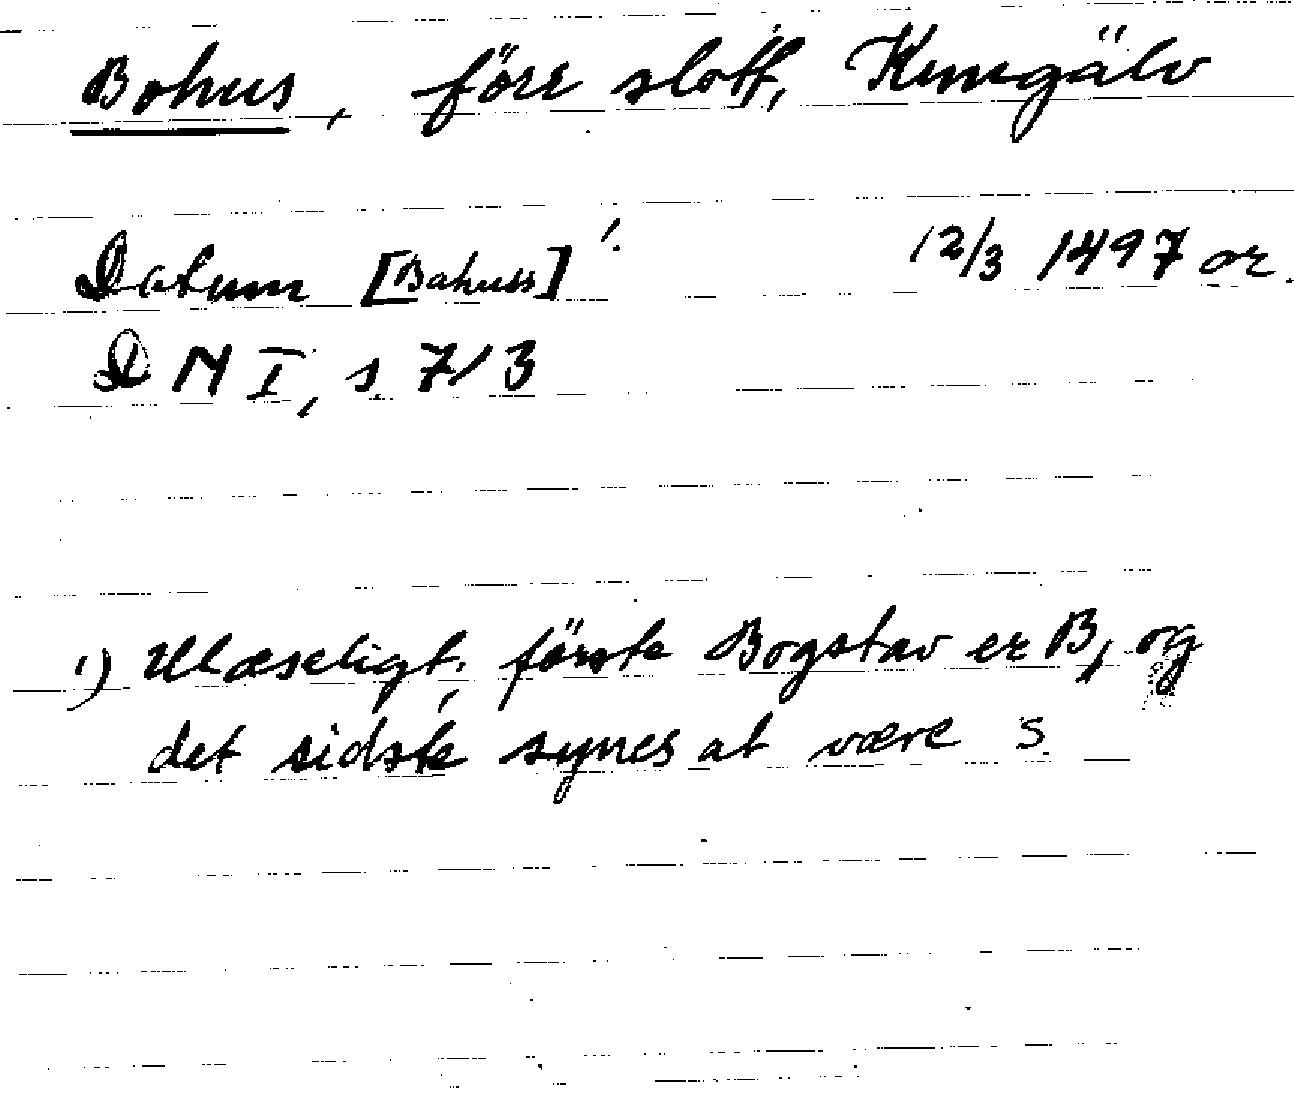 Bohus, förr slott, Kungälv
Datum [Bahuss] 1. 12/3 1497 or.
DN I, s. 713
1) Ulæseligt; förste Bogstav er B, og
det sidste synes at være s.